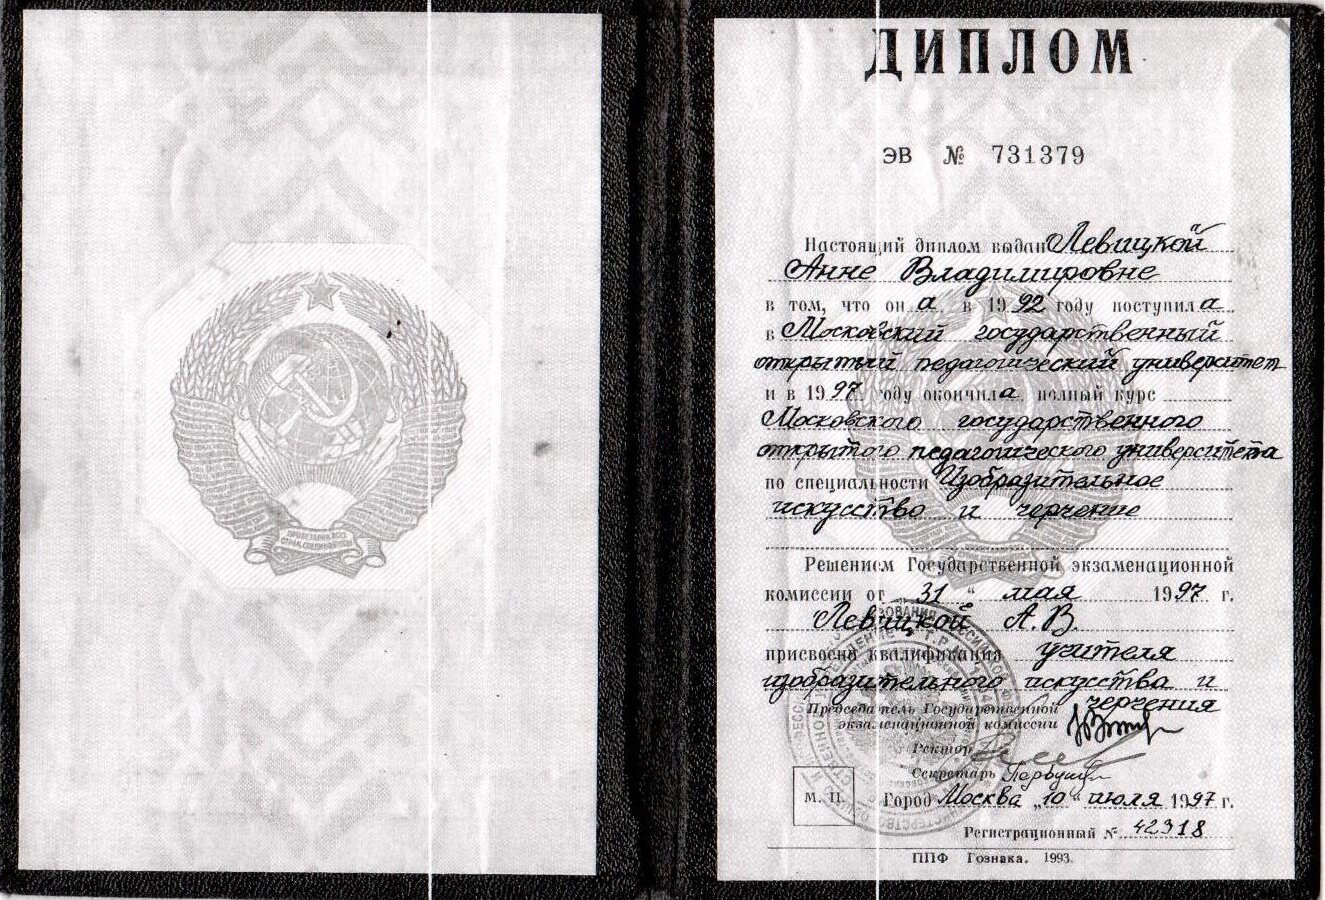 ПРОЛЕТАРИИ ВСЕХ
СТРАН, СОЕДИНЯЙТЕСЬ!
ДИПЛОМ
ЭВ № 731379
Настоящий диплом выдан Левицкой
Анне Владимировне
в том, что он а в 1992 году поступил а
в Московский государственный
открытый педагогический университет
и в 1997 году окончил а полный курс
Московского государственного
открытого педагогического университета
по специальности Изобразительное
искусство и черчение
Решением Государственной экзаменационной
комиссии от „ 31 “ мая 1997 г.
Левицкой А.В.
присвоена квалификация учителя
изобразительного искусства и
черчения
Председатель Государственной
экзаменационной комиссии
Ректор
Секретарь
М. П.
Город Москва „10“ июля 1997 г.
Регистрационный № 42318
ППФ Гознака. 1993.